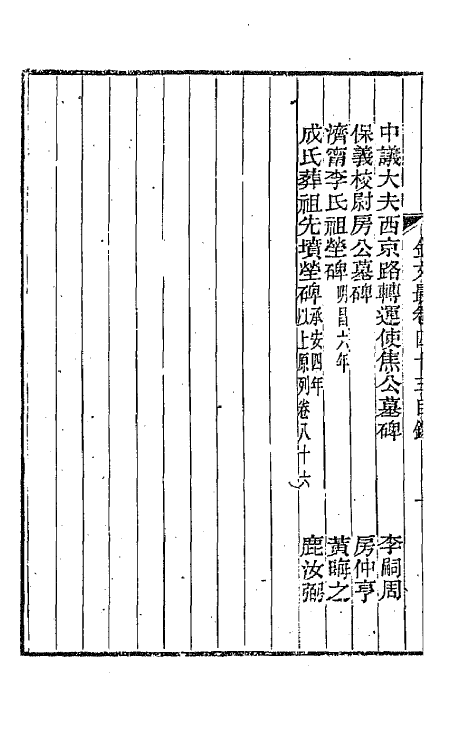 金文最卷四十五目錄 一
中議大夫西京路轉運使焦公墓碑 李嗣周
保義校尉房公墓碑 房仲亨
濟甯李氏祖塋碑 明昌六年 黃晦之
成氏葬祖先墳塋碑 承安四年 以上原列卷八十六 鹿汝弼